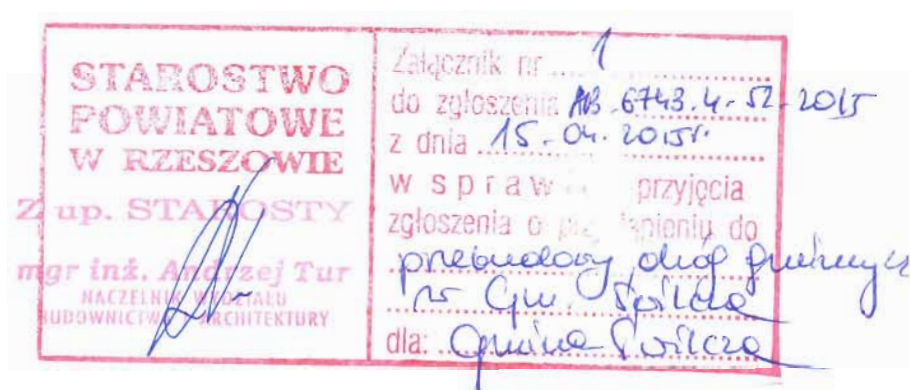 STAROSTWO
POWIATOWE
W RZESZOWIE
Z up. STAROSTY
mgr inż. Andrzej Tur
NACZELNIK WYDZIAŁU
BUDOWNICTWA ARCHITEKTURY
Załącznik nr 1
do zgłoszenia AB.6743.4.52.2015
z dnia 15.04.2015r.
w sprawie przyjęcia
zgłoszenia o przystąpieniu do
przebudowy dróg gminnych
w Gm. Świlcza
dla: Gmina Świlcza